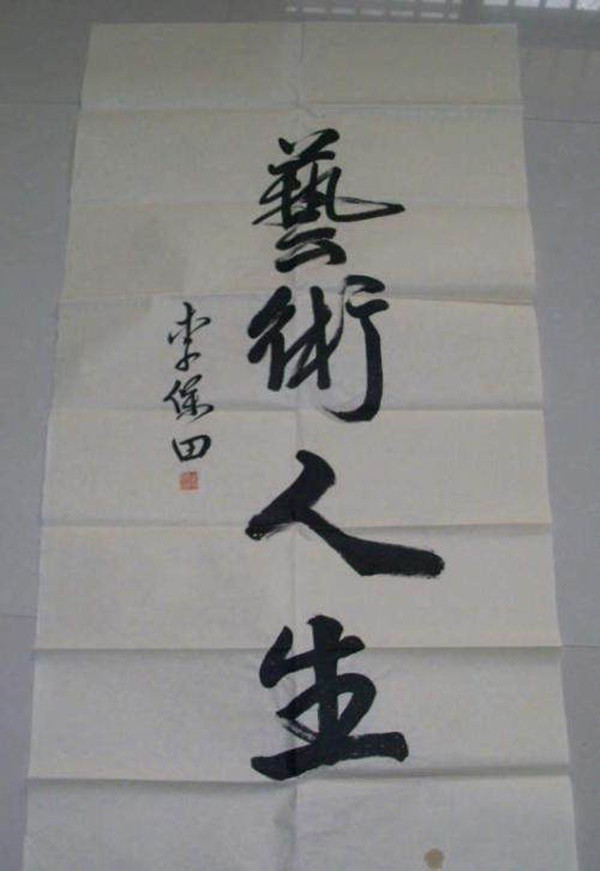 藝術人生
李保田